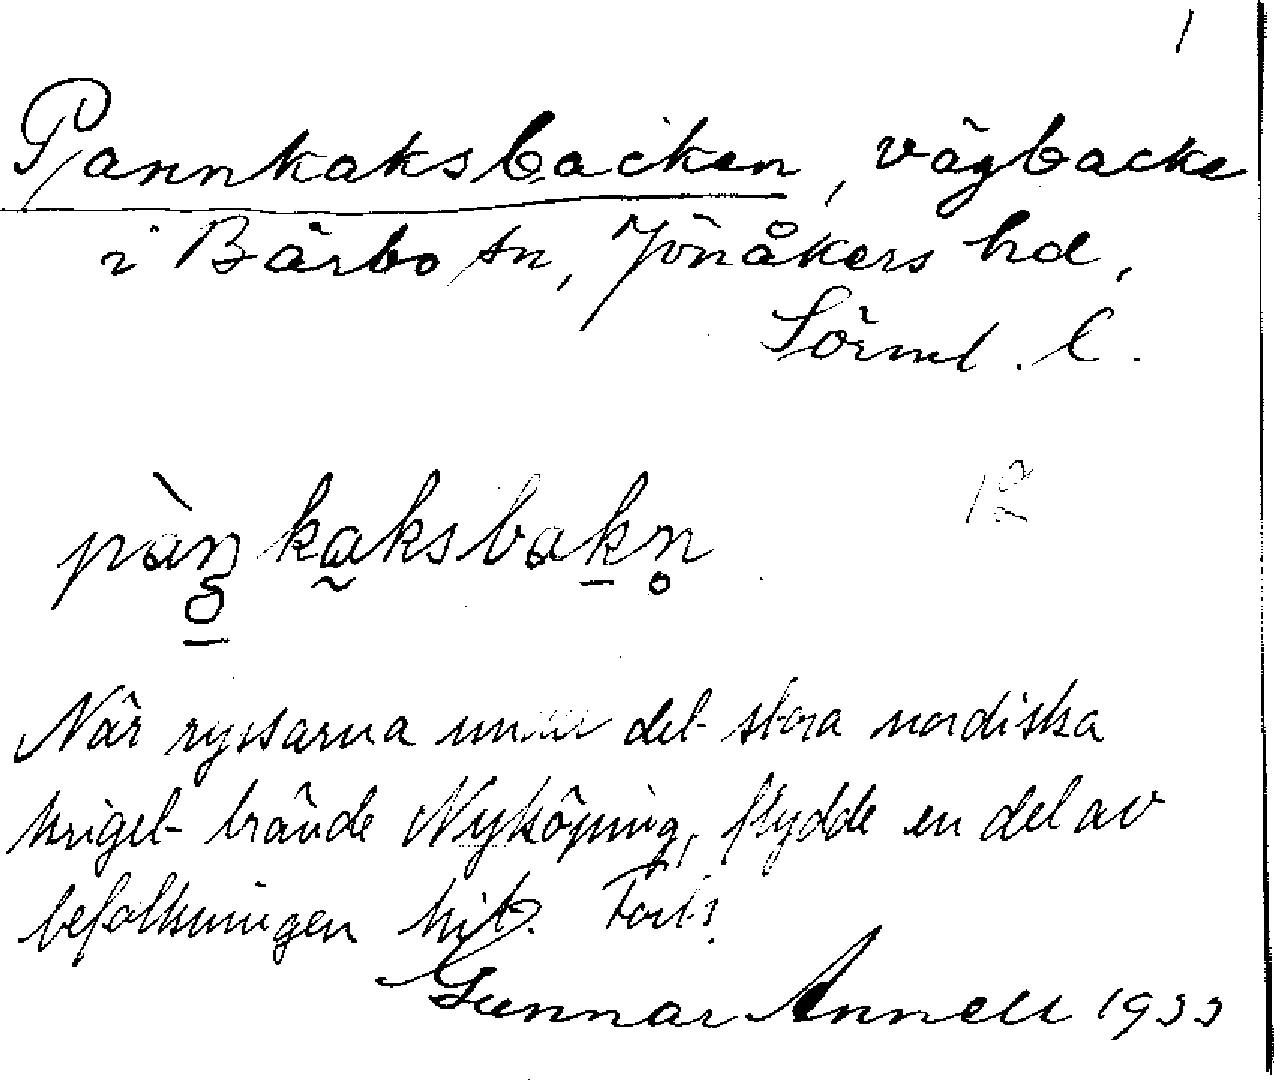 1
Pannkaksbacken, vägbacke
i Bärbo sn, Jönåkers hd,
Sörml. C.
pàn̥kaksbakn̥
När ryssarna under det stora nordiska
kriget brände Nyköping, flydde en del av
befolkningen hit. Forts.
Gunnar Annell 1933